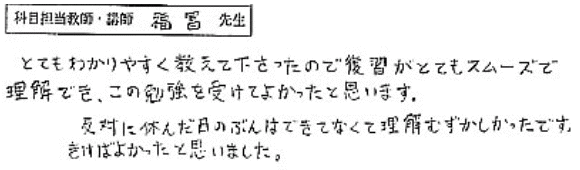 科目担当教師・講師 福冨 先生
とてもわかりやすく教えて下さったので復習がとてもスムーズで
理解でき、この勉強を受けてよかったと思います。
反対に休んだ日のぶんはできてなくて理解むずかしかったです。
きけばよかったと思いました。